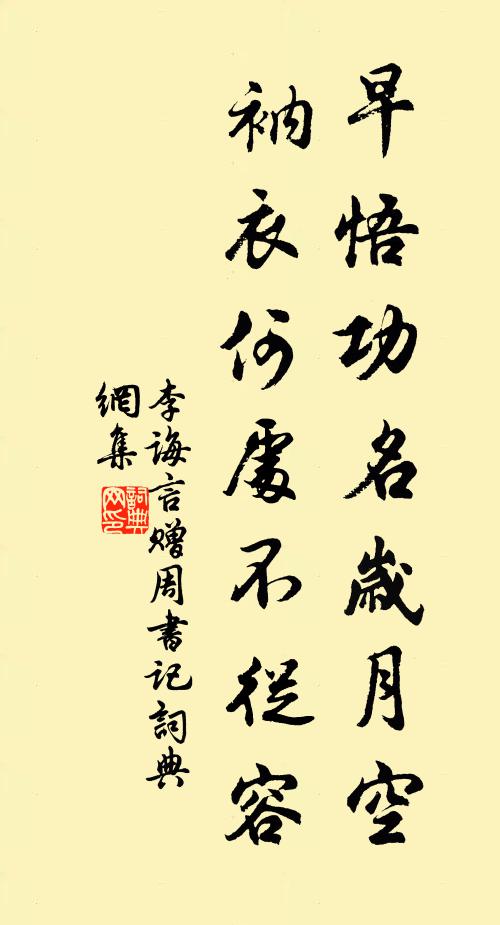 早悟功名歲月空
衲衣何處不從容
李誨言贈周書記詞典
網集
詞典
网印